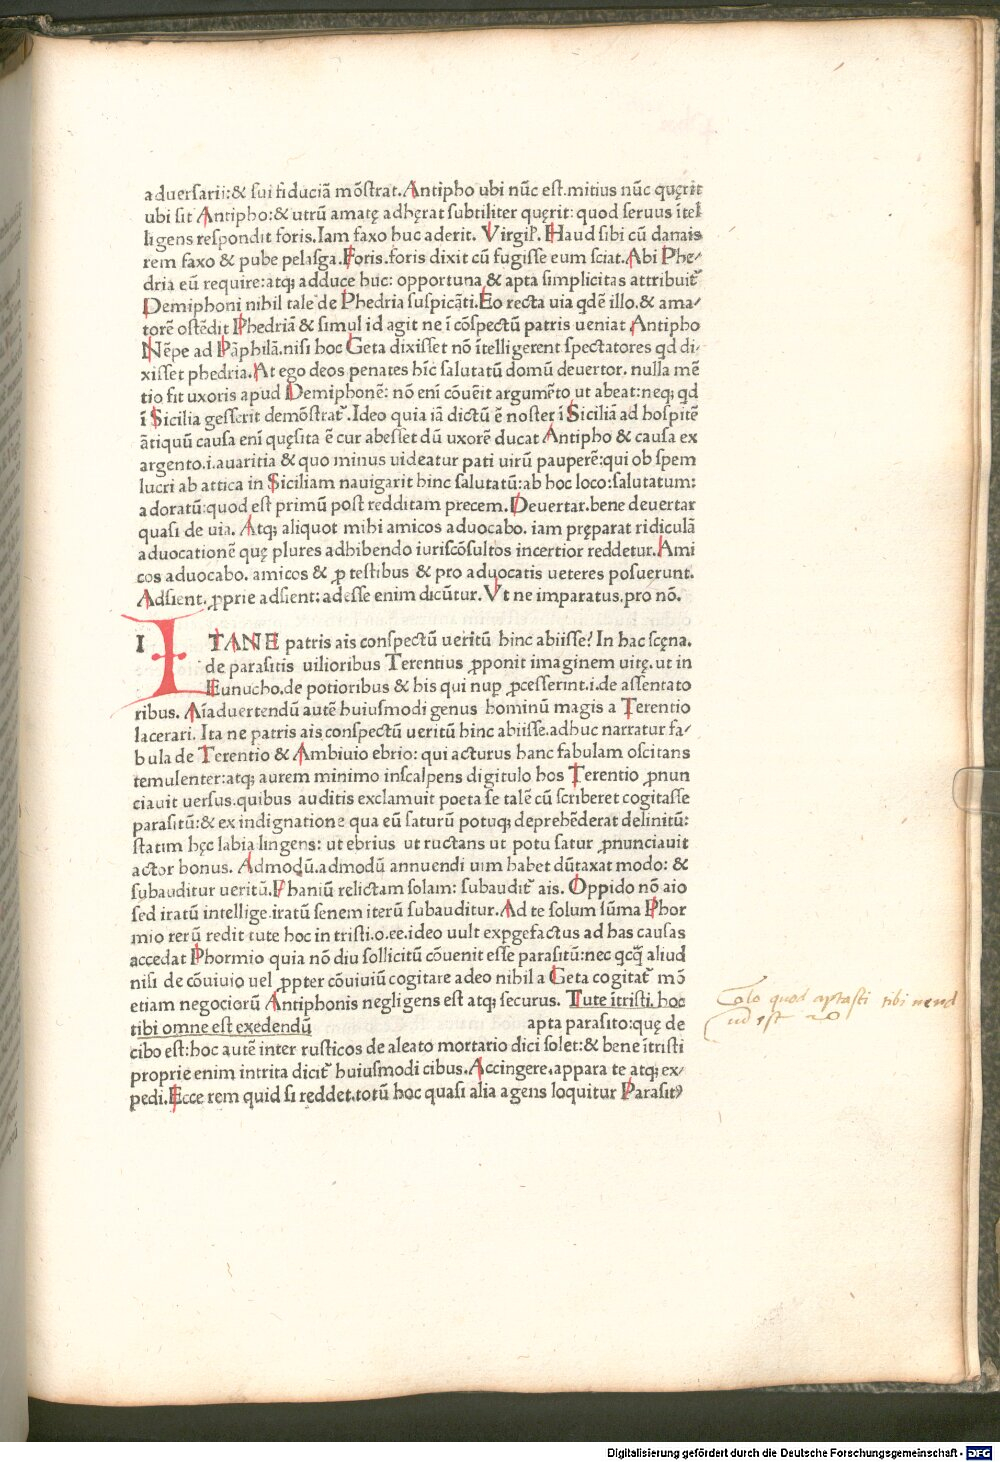 aduersarii:& sui fiduciā mōstrat.Antipho ubi nūc est.mitius nūc quęrit
ubi sit Antipho:& utrū amatę adhęrat subtiliter quęrit: quod seruus ītel
ligens respondit foris.Iam faxo huc aderit. Virgil̃. Haud sibi cū danais
rem faxo & pube pelasga.Foris.foris dixit cū fugisse eum sciat.Abi Phe⸗
dria eū require:atq; adduce huc: opportuna & apta simplicitas attribuit̃
Demiphoni nihil tale de Phedria suspicāti.Eo recta uia qdē illo.& ama⸗
torē ostēdit Phedriā & simul id agit ne ī cōspectū patris ueniat Antipho
Nēpe ad Pāphilā.nisi hoc Geta dixisset nō ītelligerent spectatores qd di⸗
xisset phedria.At ego deos penates hīc salutatū domū deuertor. nulla mē
tio fit uxoris apud Demiphonē: nō enī cōuēit argumēto ut abeat:neq; qd
ī Sicilia gesserit demōstrat̃.Ideo quia iā dictū ē noster ī Siciliā ad hospitē
ātiquū causa enī quęsita ē cur abesset dū uxorē ducat Antipho & causa ex
argento.i.auaritia & quo minus uideatur pati uirū pauperē:qui ob spem
lucri ab attica in Siciliam nauigarit hinc salutatū:ab hoc loco:salutatum:
adoratū:quod est primū post redditam precem.Deuertar.bene deuertar
quasi de uia. Atq; aliquot mihi amicos aduocabo. iam pręparat ridiculā
aduocationē quę plures adhibendo iuriscōsultos incertior reddetur.Ami
cos aduocabo. amicos & ꝓ testibus & pro aduocatis ueteres posuerunt.
Adsient. ꝓprie adsient: adesse enim dicūtur.Vt ne imparatus.pro nō.
I TANE patris ais conspectū ueritū hinc abiisse? In hac scęna.
de parasitis uilioribus Terentius ꝓponit imaginem uitę.ut in
Eunucho.de potioribus & his qui nuꝑ ꝓcesserint.i.de assentato
ribus. Aīaduertendū autē huiusmodi genus hominū magis a Terentio
lacerari. Ita ne patris ais conspectū ueritū hinc abiisse.adhuc narratur fa⸗
bula de Terentio & Ambiuio ebrio: qui acturus hanc fabulam oscitans
temulenter:atq; aurem minimo inscalpens digitulo hos Terentio ꝓnun
ciauit uersus.quibus auditis exclamuit poeta se talē cū scriberet cogitasse
parasitū:& ex indignatione qua eū saturū potuq; deprehēderat delinitū:
statim hęc labia lingens: ut ebrius ut ructans ut potu satur ꝓnunciauit
actor bonus. Admodū.admodū annuendi uim habet dūtaxat modo: &
subauditur ueritū.Phaniū relictam solam: subaudit̃ ais. Oppido nō aio
sed iratū intellige.iratū senem iterū subauditur.Ad te solum sūma Phor
mio rerū redit tute hoc in tristi.o.ee.ideo uult exꝑgefactus ad has causas
accedat Phormio quia nō diu sollicitū cōuenit esse parasitū:nec qcq̄ aliud
nisi de cōuiuio uel ꝓpter cōuiuiū cogitare adeo nihil a Geta cogitat̃ mō
etiam negociorū Antiphonis negligens est atq; securus. Tute ītristi. hoc
tibi omne est exedendū apta parasito:quę de
cibo est:hoc autē inter rusticos de aleato mortario dici solet:& bene ītristi
proprie enim intrita dicit̃ huiusmodi cibus.Accingere.appara te atq; ex⸗
pedi.Ecce rem quid si reddet.totū hoc quasi alia agens loquitur Parasitꝰ
quod aptasti tibi
est
Digitalisierung gefördert durch die Deutsche Forschungsgemeinschaft - DFG